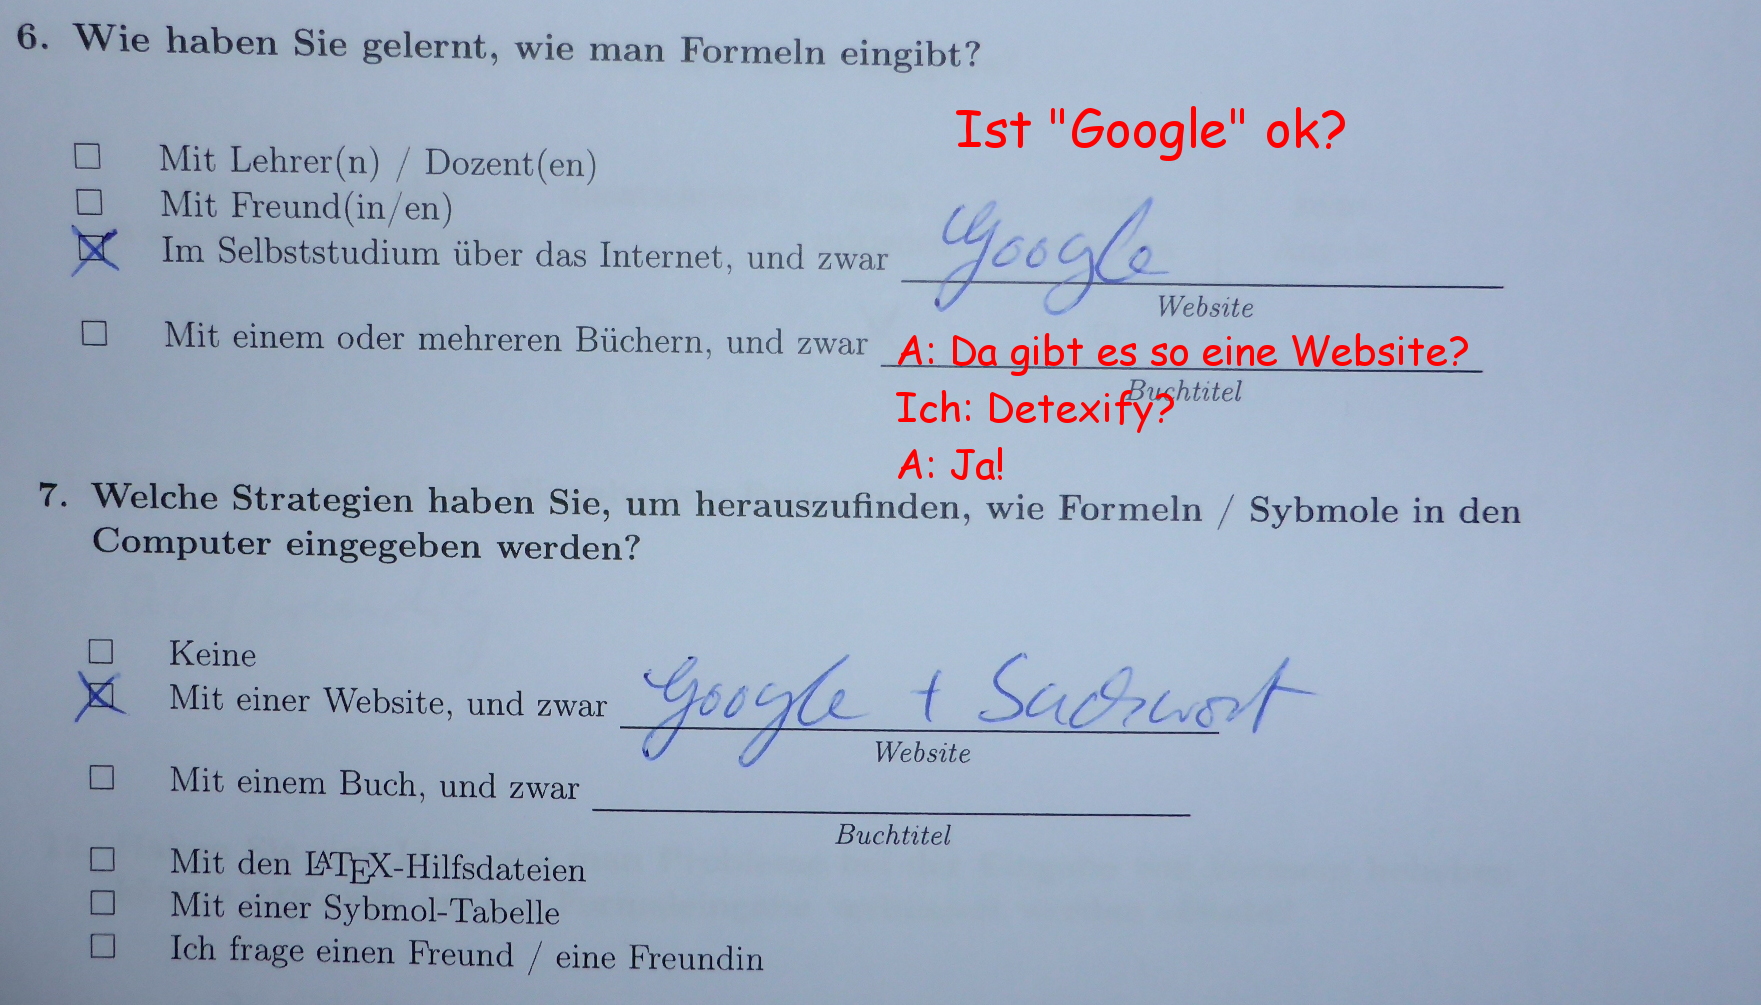 6. Wie haben Sie gelernt, wie man Formeln eingibt?
Ist "Google" ok?
☐ Mit Lehrer(n) / Dozent(en)
☐ Mit Freund(in/en)
☒ Im Selbststudium über das Internet, und zwar Google
Website
☐ Mit einem oder mehreren Büchern, und zwar
A: Da gibt es so eine Website?
Buchtitel
Ich: Detexify?
A: Ja!
7. Welche Strategien haben Sie, um herauszufinden, wie Formeln / Sybmole in den
Computer eingegeben werden?
☐ Keine
☒ Mit einer Website, und zwar Google + Suchwort
Website
☐ Mit einem Buch, und zwar
Buchtitel
☐ Mit den LATEX-Hilfsdateien
☐ Mit einer Sybmol-Tabelle
☐ Ich frage einen Freund / eine Freundin